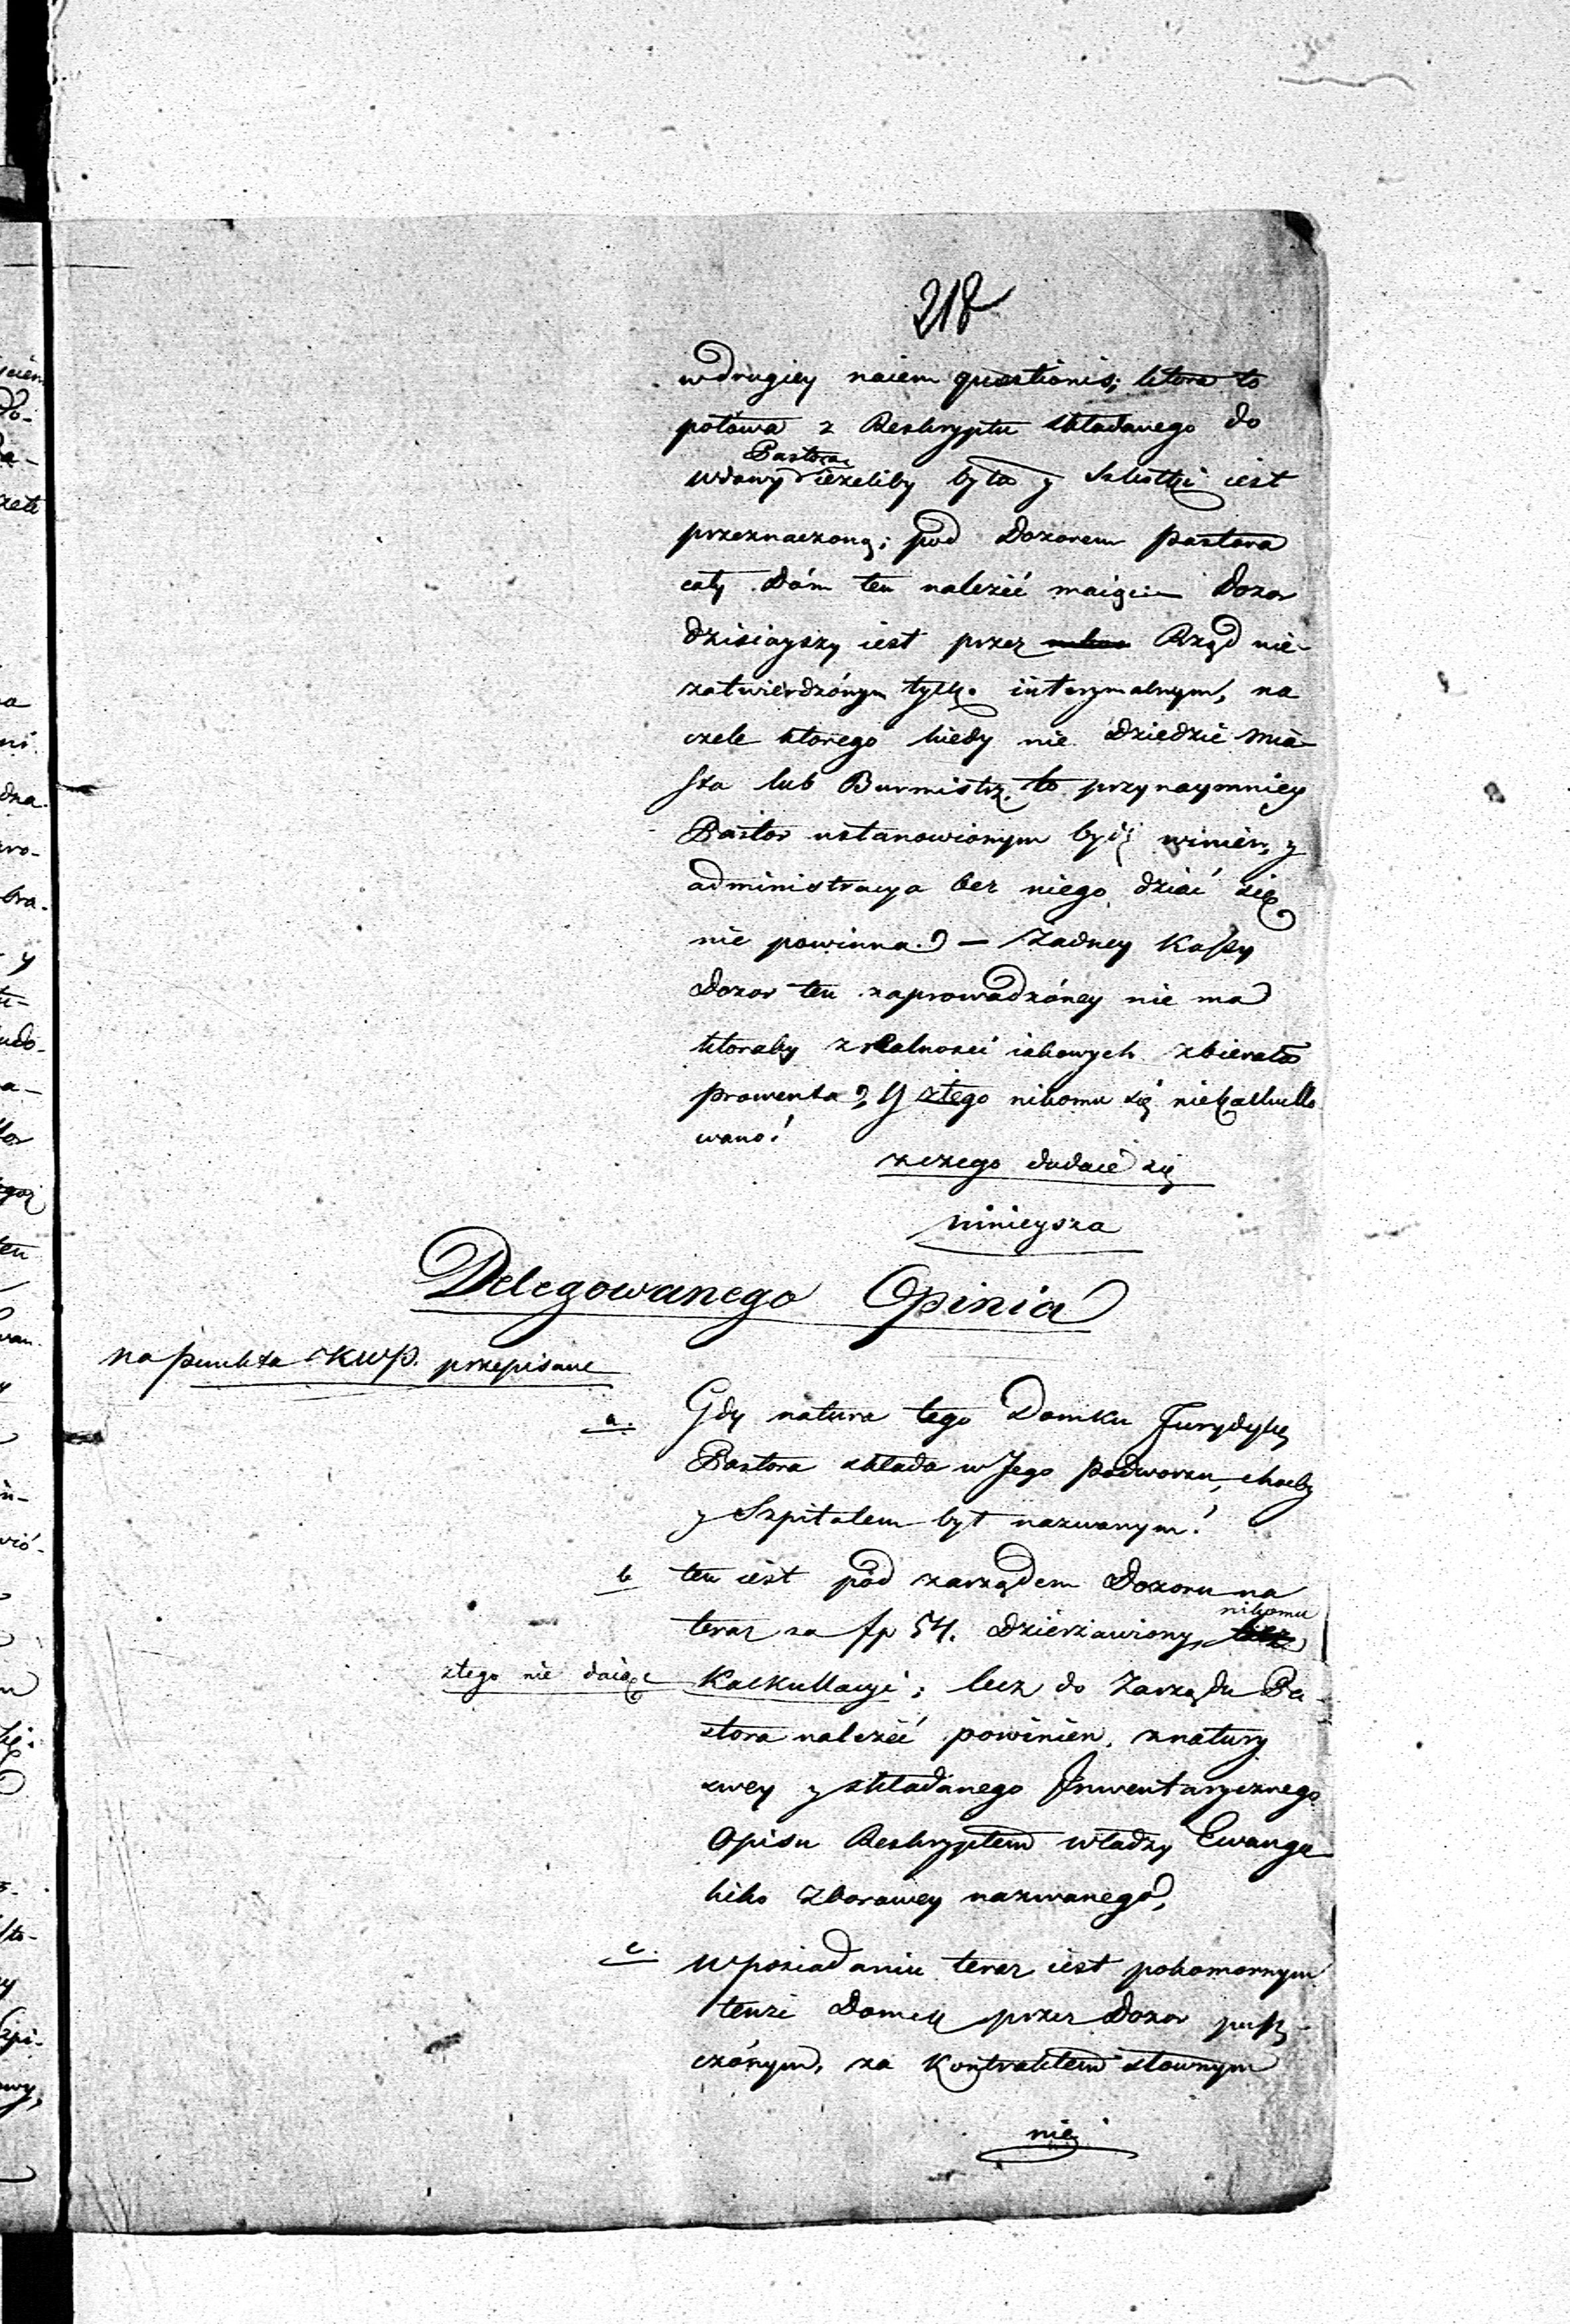 218
wdrugiey naiem questionis; ktora to
połowa z Reskryptu składanego do
Pastora
wdowy ieżeliby była y Szkołki iest
przeznaczoną; pod Dozorem pastora
cały Dóm ten należéć maiąc Dozor
dzisieyszy iest przez Rząd nie-
zatwierdzónym tylko interymalnym, na
czele ktorego kiedy nie Dziedzic Mia-
sta lub Burmistrz. to przynaymniey
Pastor ustanowionym bydź winien, y
administracya bez niego dziać się
nie powinna. — Żadney Kassy
Dozor ten zaprowadzóney nie ma
ktoraby z realnosci iakowych zbierała
prowenta, y ztego nikomu się niekalkullo
wano!
zczego dudaie się
ninieysza
Delegowanego Opinia
na punkta KWP. przepisane
a. Gdy natura tego Domku Jurydykę
Pastora składa w Jego podworzu, choćby
y Szpitalem był nazwanym!
b ten iest pód zarządem Dozoru na
nikomu
teraz za fp 54. dzierżawiony,
ztego nie daiąc Kalkullacyi; lecz do Zarządu Pa-
stora należéć powinien. znatury
swey y składanego Jnwentarycznego
Opisu Reskryptem władzy Ewange
licko Zborowey nazwanego,
c. w posiadaniu teraz iest pokomornym
tenże Domek przez Dozor pusz-
czónym, za Kontraktem słownym
nie